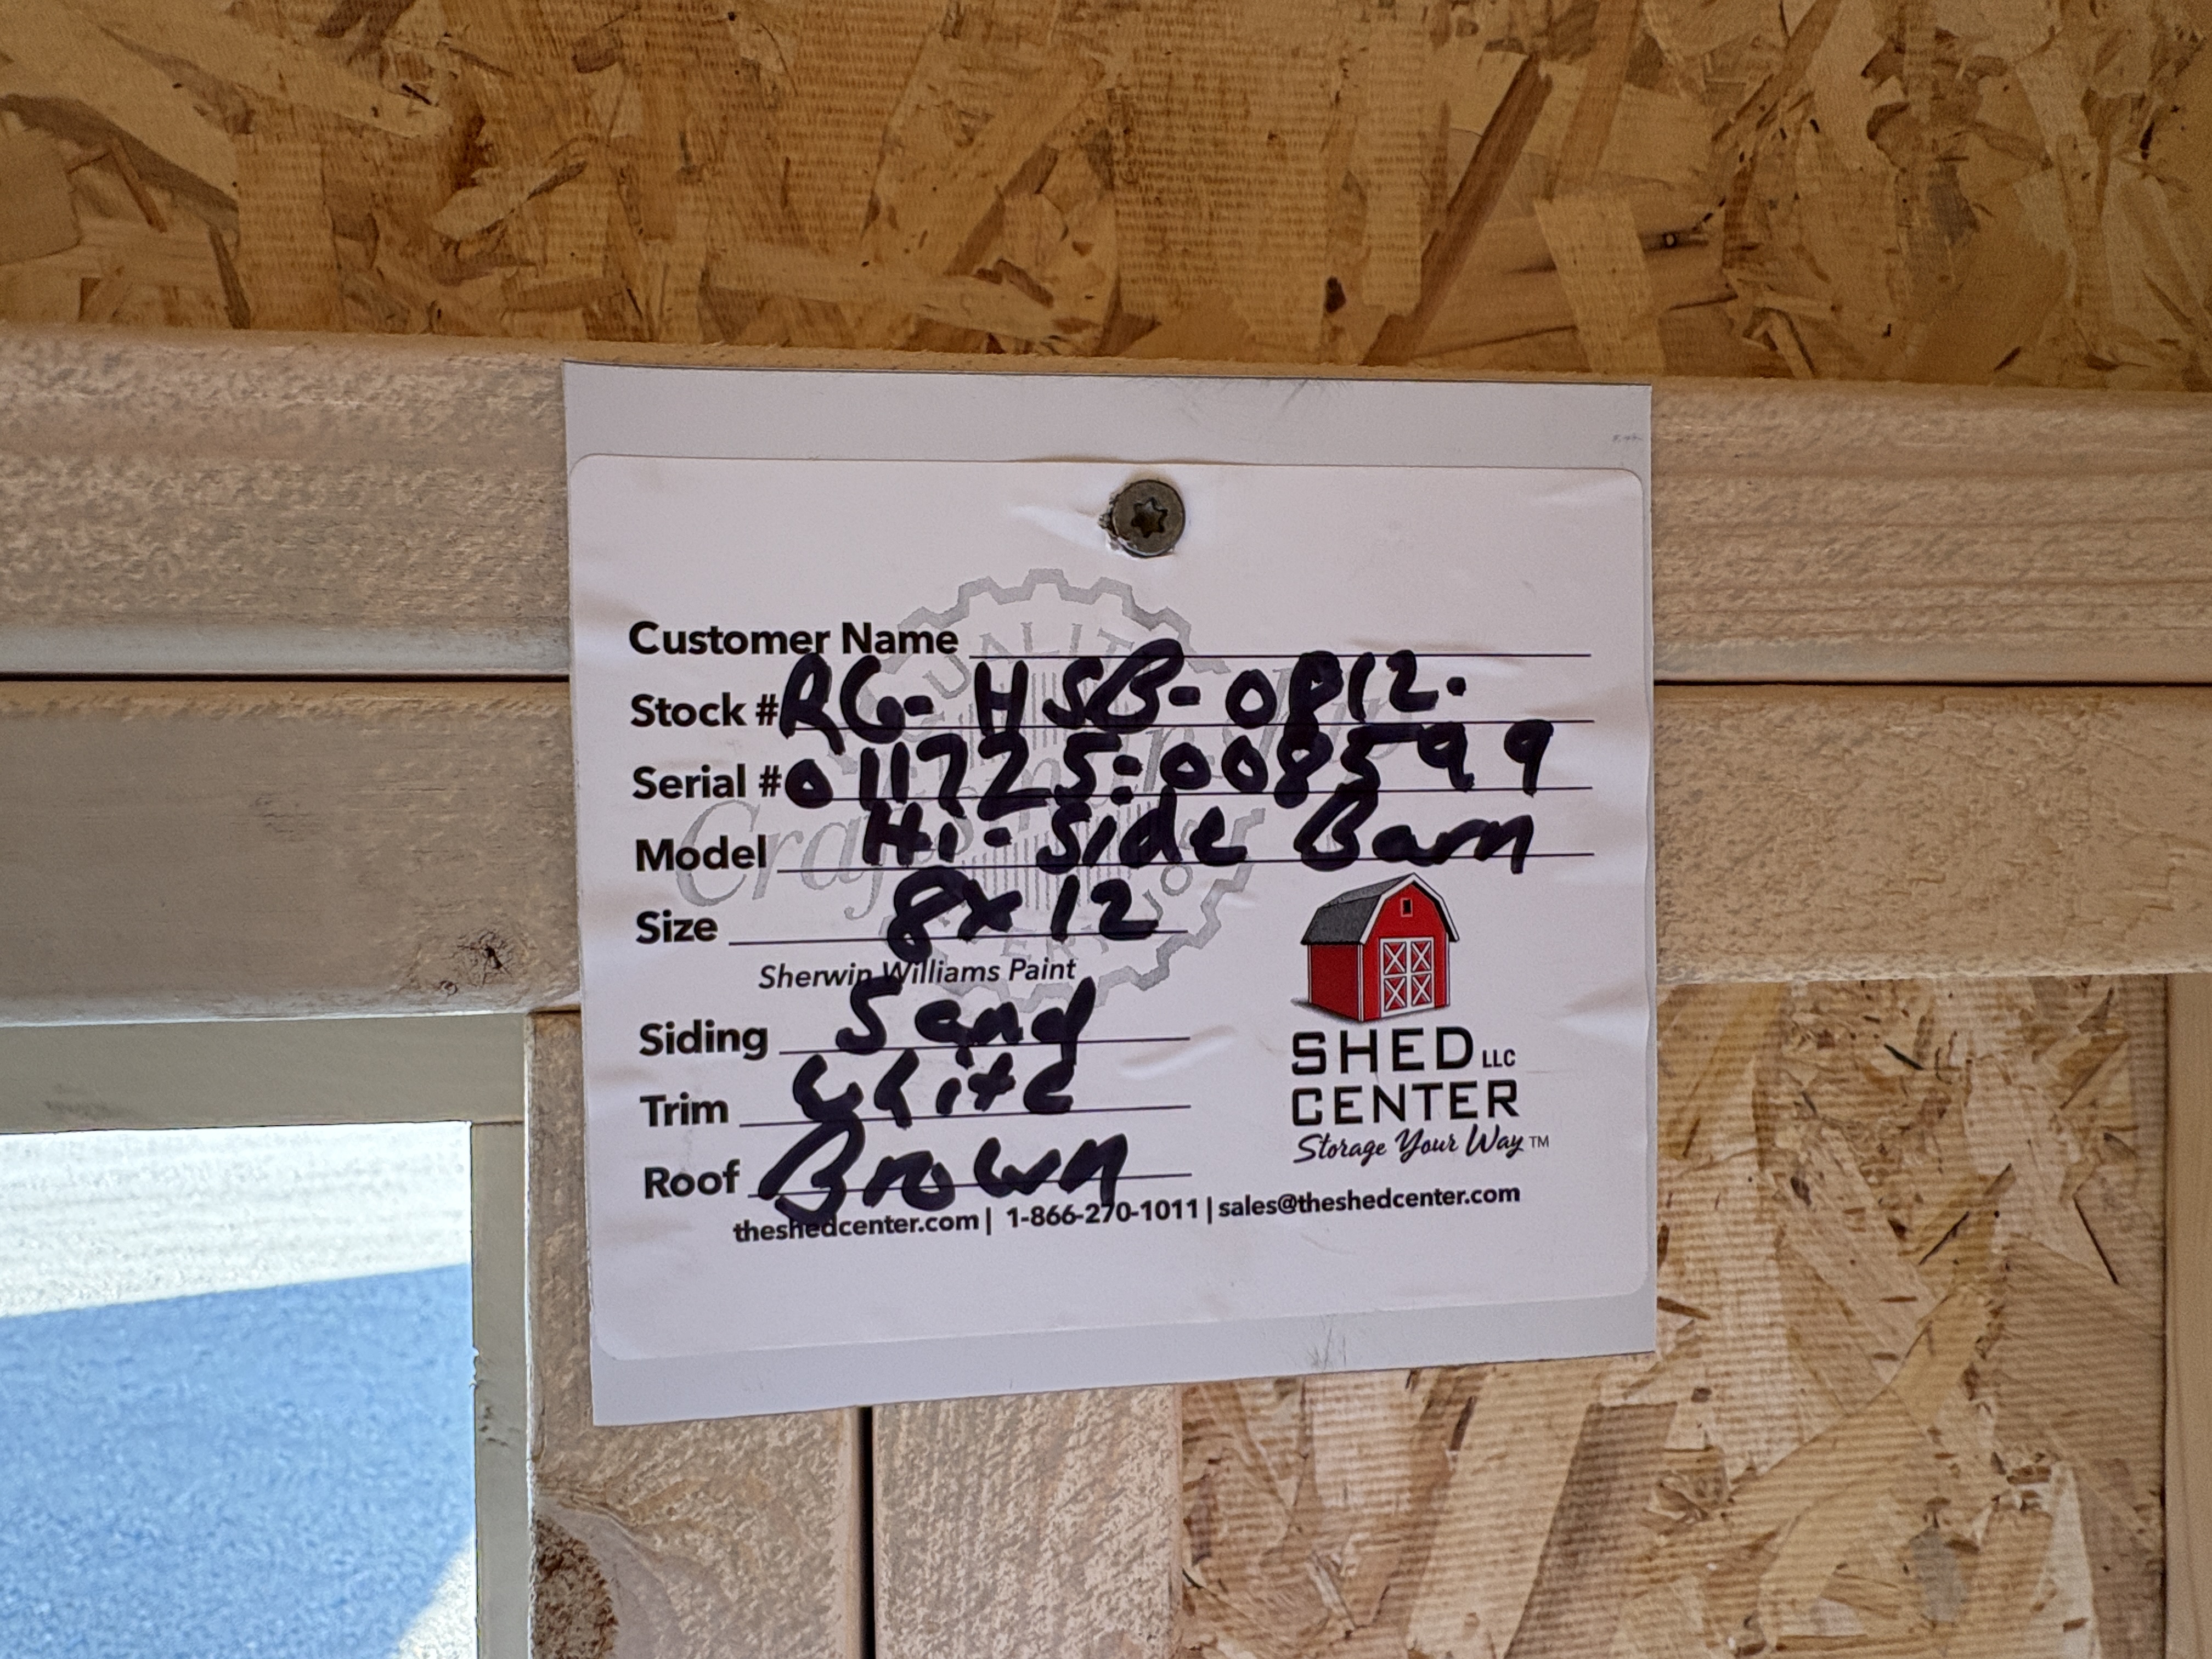 Customer Name
Stock # RG-HSB-0812-
Serial # 011725-008599
Model Hi-Side Barn
Size 8x12
Sherwin Williams Paint
Siding Sand
Trim White
Roof Brown
SHED LLC
CENTER
Storage Your Way™
theshedcenter.com | 1-866-270-1011 | sales@theshedcenter.com